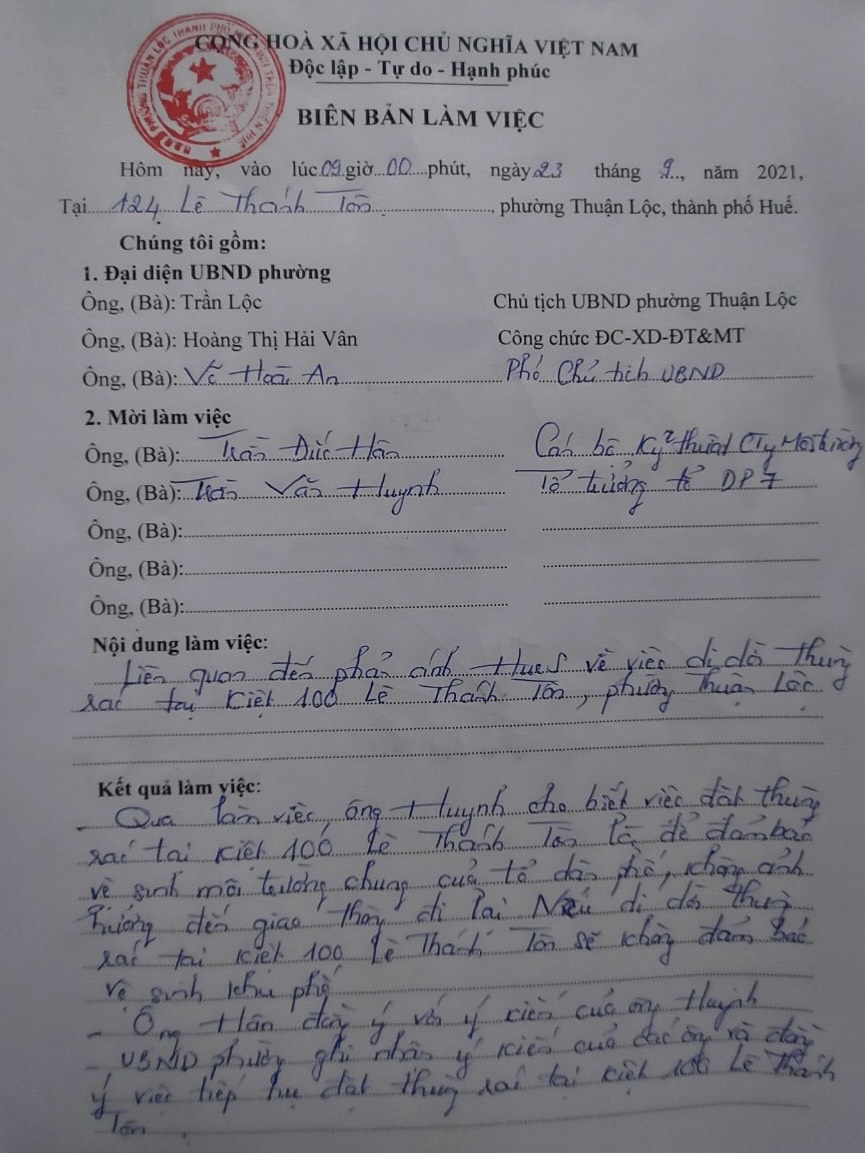 CỘNG HOÀ XÃ HỘI CHỦ NGHĨA VIỆT NAM
Độc lập - Tự do - Hạnh phúc
BIÊN BẢN LÀM VIỆC
Hôm nay, vào lúc 09 giờ 00 phút, ngày 23 tháng 9, năm 2021,
Tại 124 Lê Thánh Tôn, phường Thuận Lộc, thành phố Huế.
Chúng tôi gồm:
1. Đại diện UBND phường
Ông, (Bà): Trần Lộc Chủ tịch UBND phường Thuận Lộc
Ông, (Bà): Hoàng Thị Hải Vân Công chức ĐC-XD-ĐT&MT
Ông, (Bà): Võ Hoài An Phó Chủ tịch UBND
2. Mời làm việc
Ông, (Bà): Trần Đức Hân Cán bộ Kỹ thuật CTy
Ông, (Bà): Trần Văn Huynh Tổ trưởng tổ DP7
Ông, (Bà):
Ông, (Bà):
Ông, (Bà):
Nội dung làm việc:
Liên quan đến phản ánh HueS về việc di dời thùng
rác tại Kiệt 100 Lê Thánh Tôn, phường Thuận Lộc
Kết quả làm việc:
- Qua làm việc, ông Huynh cho biết việc đặt thùng
rác tại Kiệt 100 Lê Thánh Tôn là để đảm bảo
vệ sinh môi trường chung của tổ dân phố, không ảnh
hưởng đến giao thông đi lại Nếu di dời thùng
rác tại Kiệt 100 Lê Thánh Tôn sẽ không đảm bảo
vệ sinh khu phố
- Ông Hân đồng ý với ý kiến của ông Huỳnh
- UBND phường ghi nhận ý kiến của các ông và đồng
ý việc tiếp tục đặt thùng rác tại Kiệt 100 Lê Thánh
Tôn.